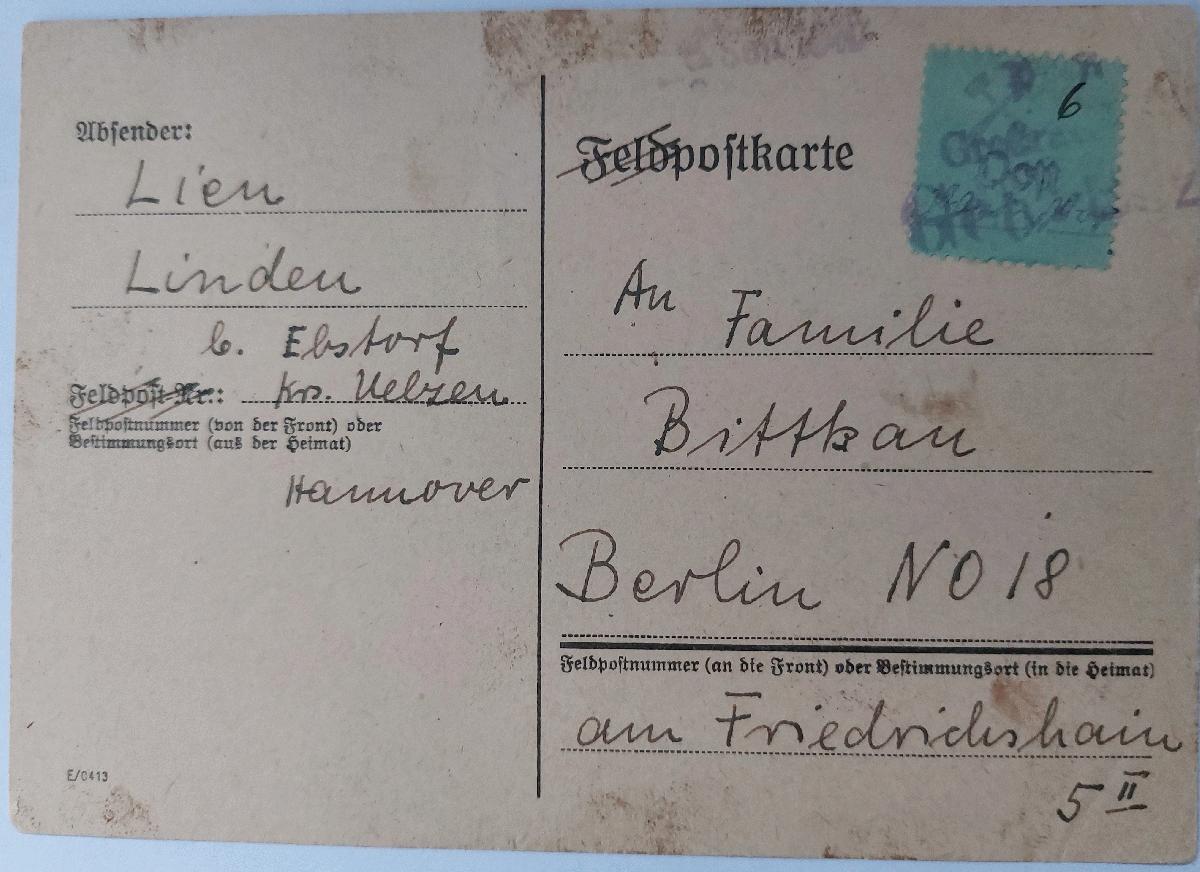 Absender:
Lien
Linden
b. Ebstorf
Feldpost-Nr.: Krs. Uelzen
Feldpostnummer (von der Front) oder
Bestimmungsort (aus der Heimat)
Hannover
E/0413
Feldpostkarte
6
An Familie
Bittkau
Berlin NO 18
Feldpostnummer (an die Front) oder Bestimmungsort (in die Heimat)
am Friedrichshain
5 II